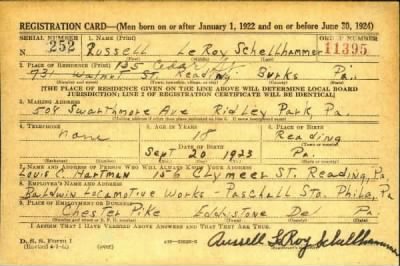 REGISTRATION CARD—(Men born on or after January 1, 1922 and on or before June 30, 1924)
SERIAL NUMBER 1. NAME (Print) ORDER NUMBER
N 252 Russell Le Roy Schellhammer 11395
(First) (Middle) (Last)
2. PLACE OF RESIDENCE (Print) 135 Cedar St.
731 Walnut St. Reading Berks Pa.
(Number and street) (Town, township, village, or city) (County) (State)
[THE PLACE OF RESIDENCE GIVEN ON THE LINE ABOVE WILL DETERMINE LOCAL BOARD
JURISDICTION; LINE 2 OF REGISTRATION CERTIFICATE WILL BE IDENTICAL]
3. MAILING ADDRESS
508 Swarthmore Ave Ridley Park, Pa.
4. TELEPHONE 5. AGE IN YEARS 6. PLACE OF BIRTH
none 18 Reading
DATE OF BIRTH
Sept 20 1923 Pa.
7. NAME AND ADDRESS OF PERSON WHO WILL ALWAYS KNOW YOUR ADDRESS
Louis C. Hartman 156 Clymer St. Reading, Pa
8. EMPLOYER'S NAME AND ADDRESS
Baldwin Locomotive Works - Paschall Sta. Phila, Pa
9. PLACE OF EMPLOYMENT OR BUSINESS
Chester Pike Eddystone Del Pa.
I AFFIRM THAT I HAVE VERIFIED ABOVE ANSWERS AND THAT THEY ARE TRUE.
D. S. S. Form 1 (over)
Russell LeRoy Schellhammer